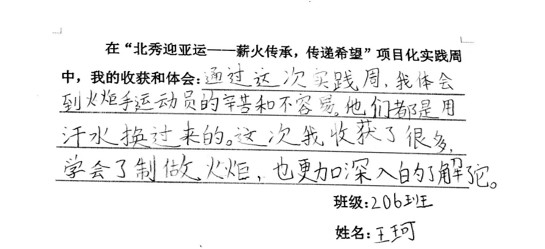 在“北秀迎亚运——薪火传承，传递希望”项目化实践周
中，我的收获和体会：通过这次实践周，我体会
到火炬手运动员的辛苦和不容易。他们都是用
汗水换过来的。这次我收获了很多，
学会了制做火炬，也更加深入的了解了它。
班级：206班
姓名：王珂